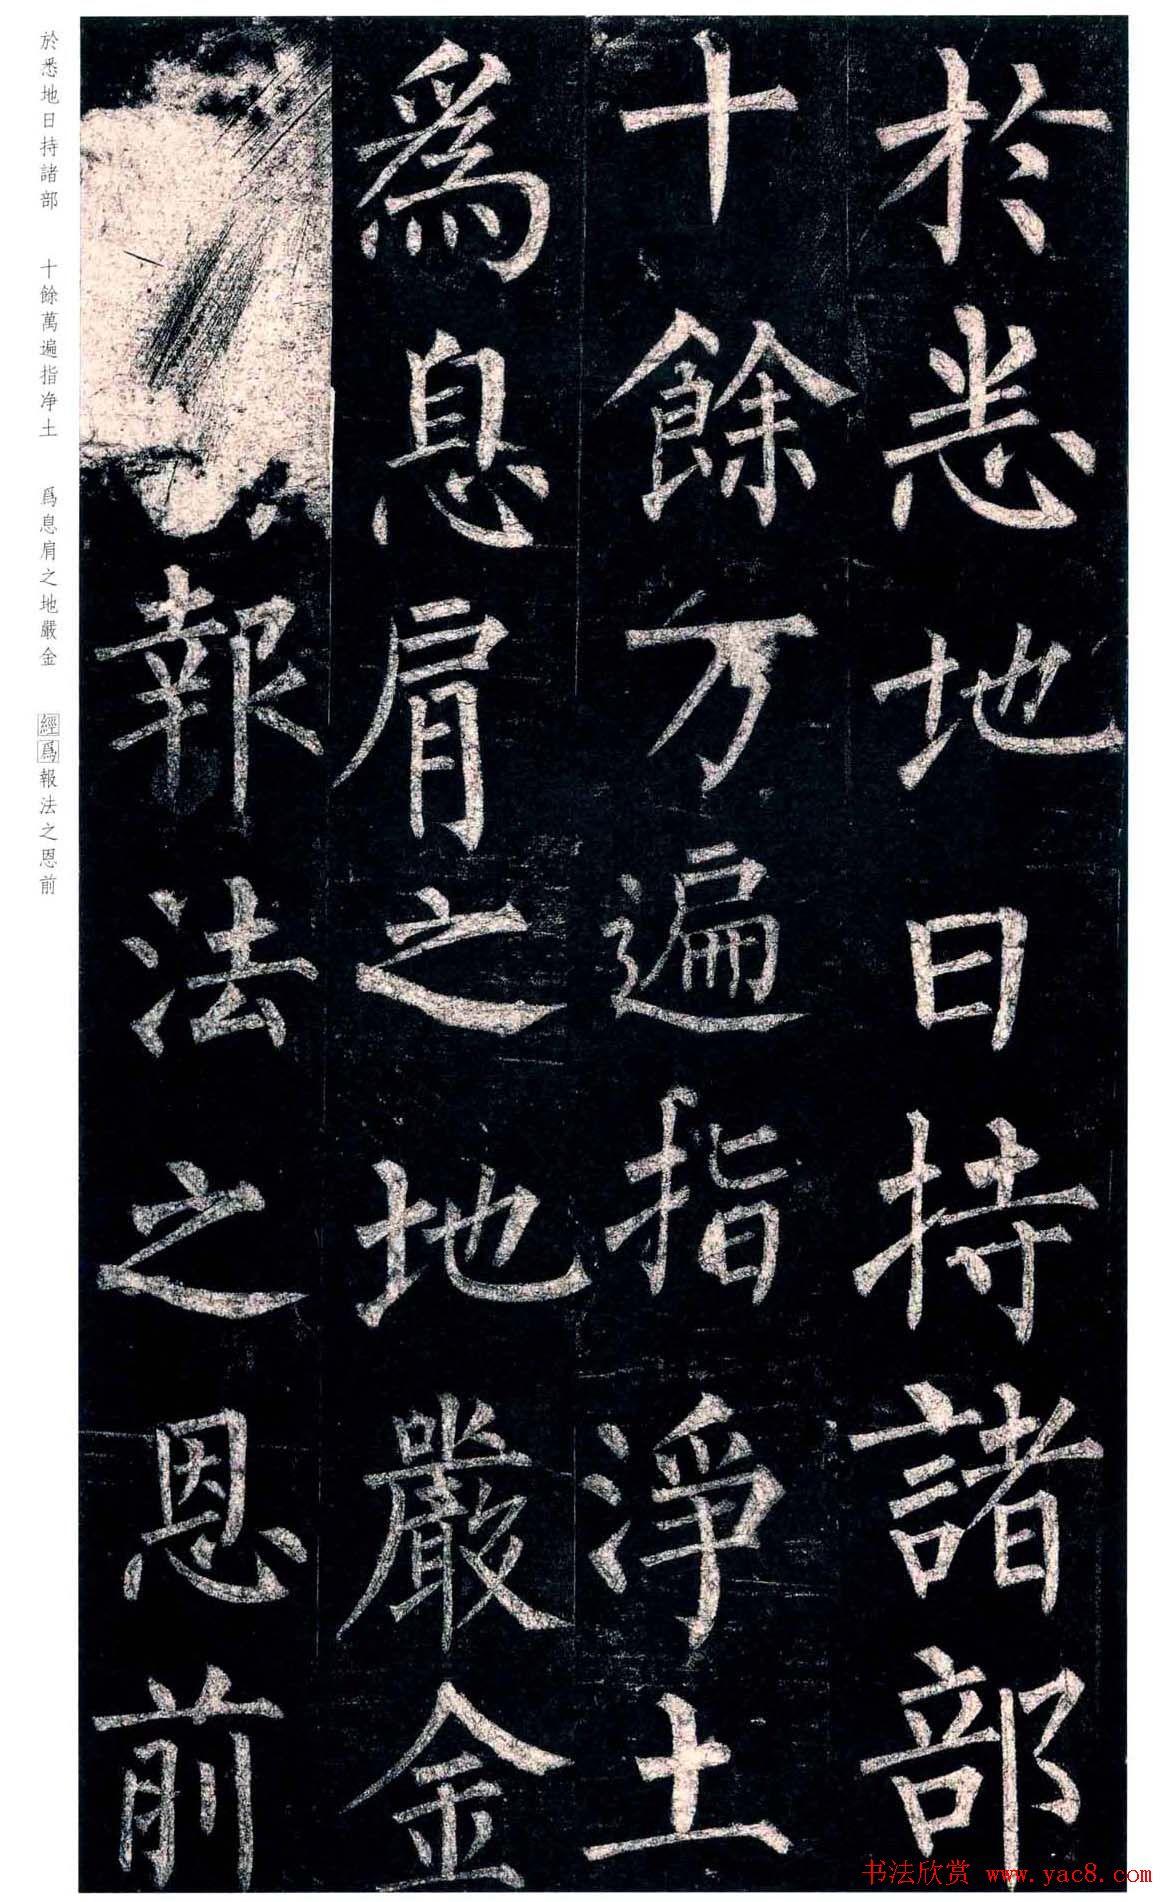 於悉地日持諸部
十餘万遍指淨土
為息肩之地嚴金
報法之恩前
於悉地日持諸部 十餘萬遍指净土 爲息肩之地嚴金 經爲報法之恩前
书法欣赏 www.yac8.com